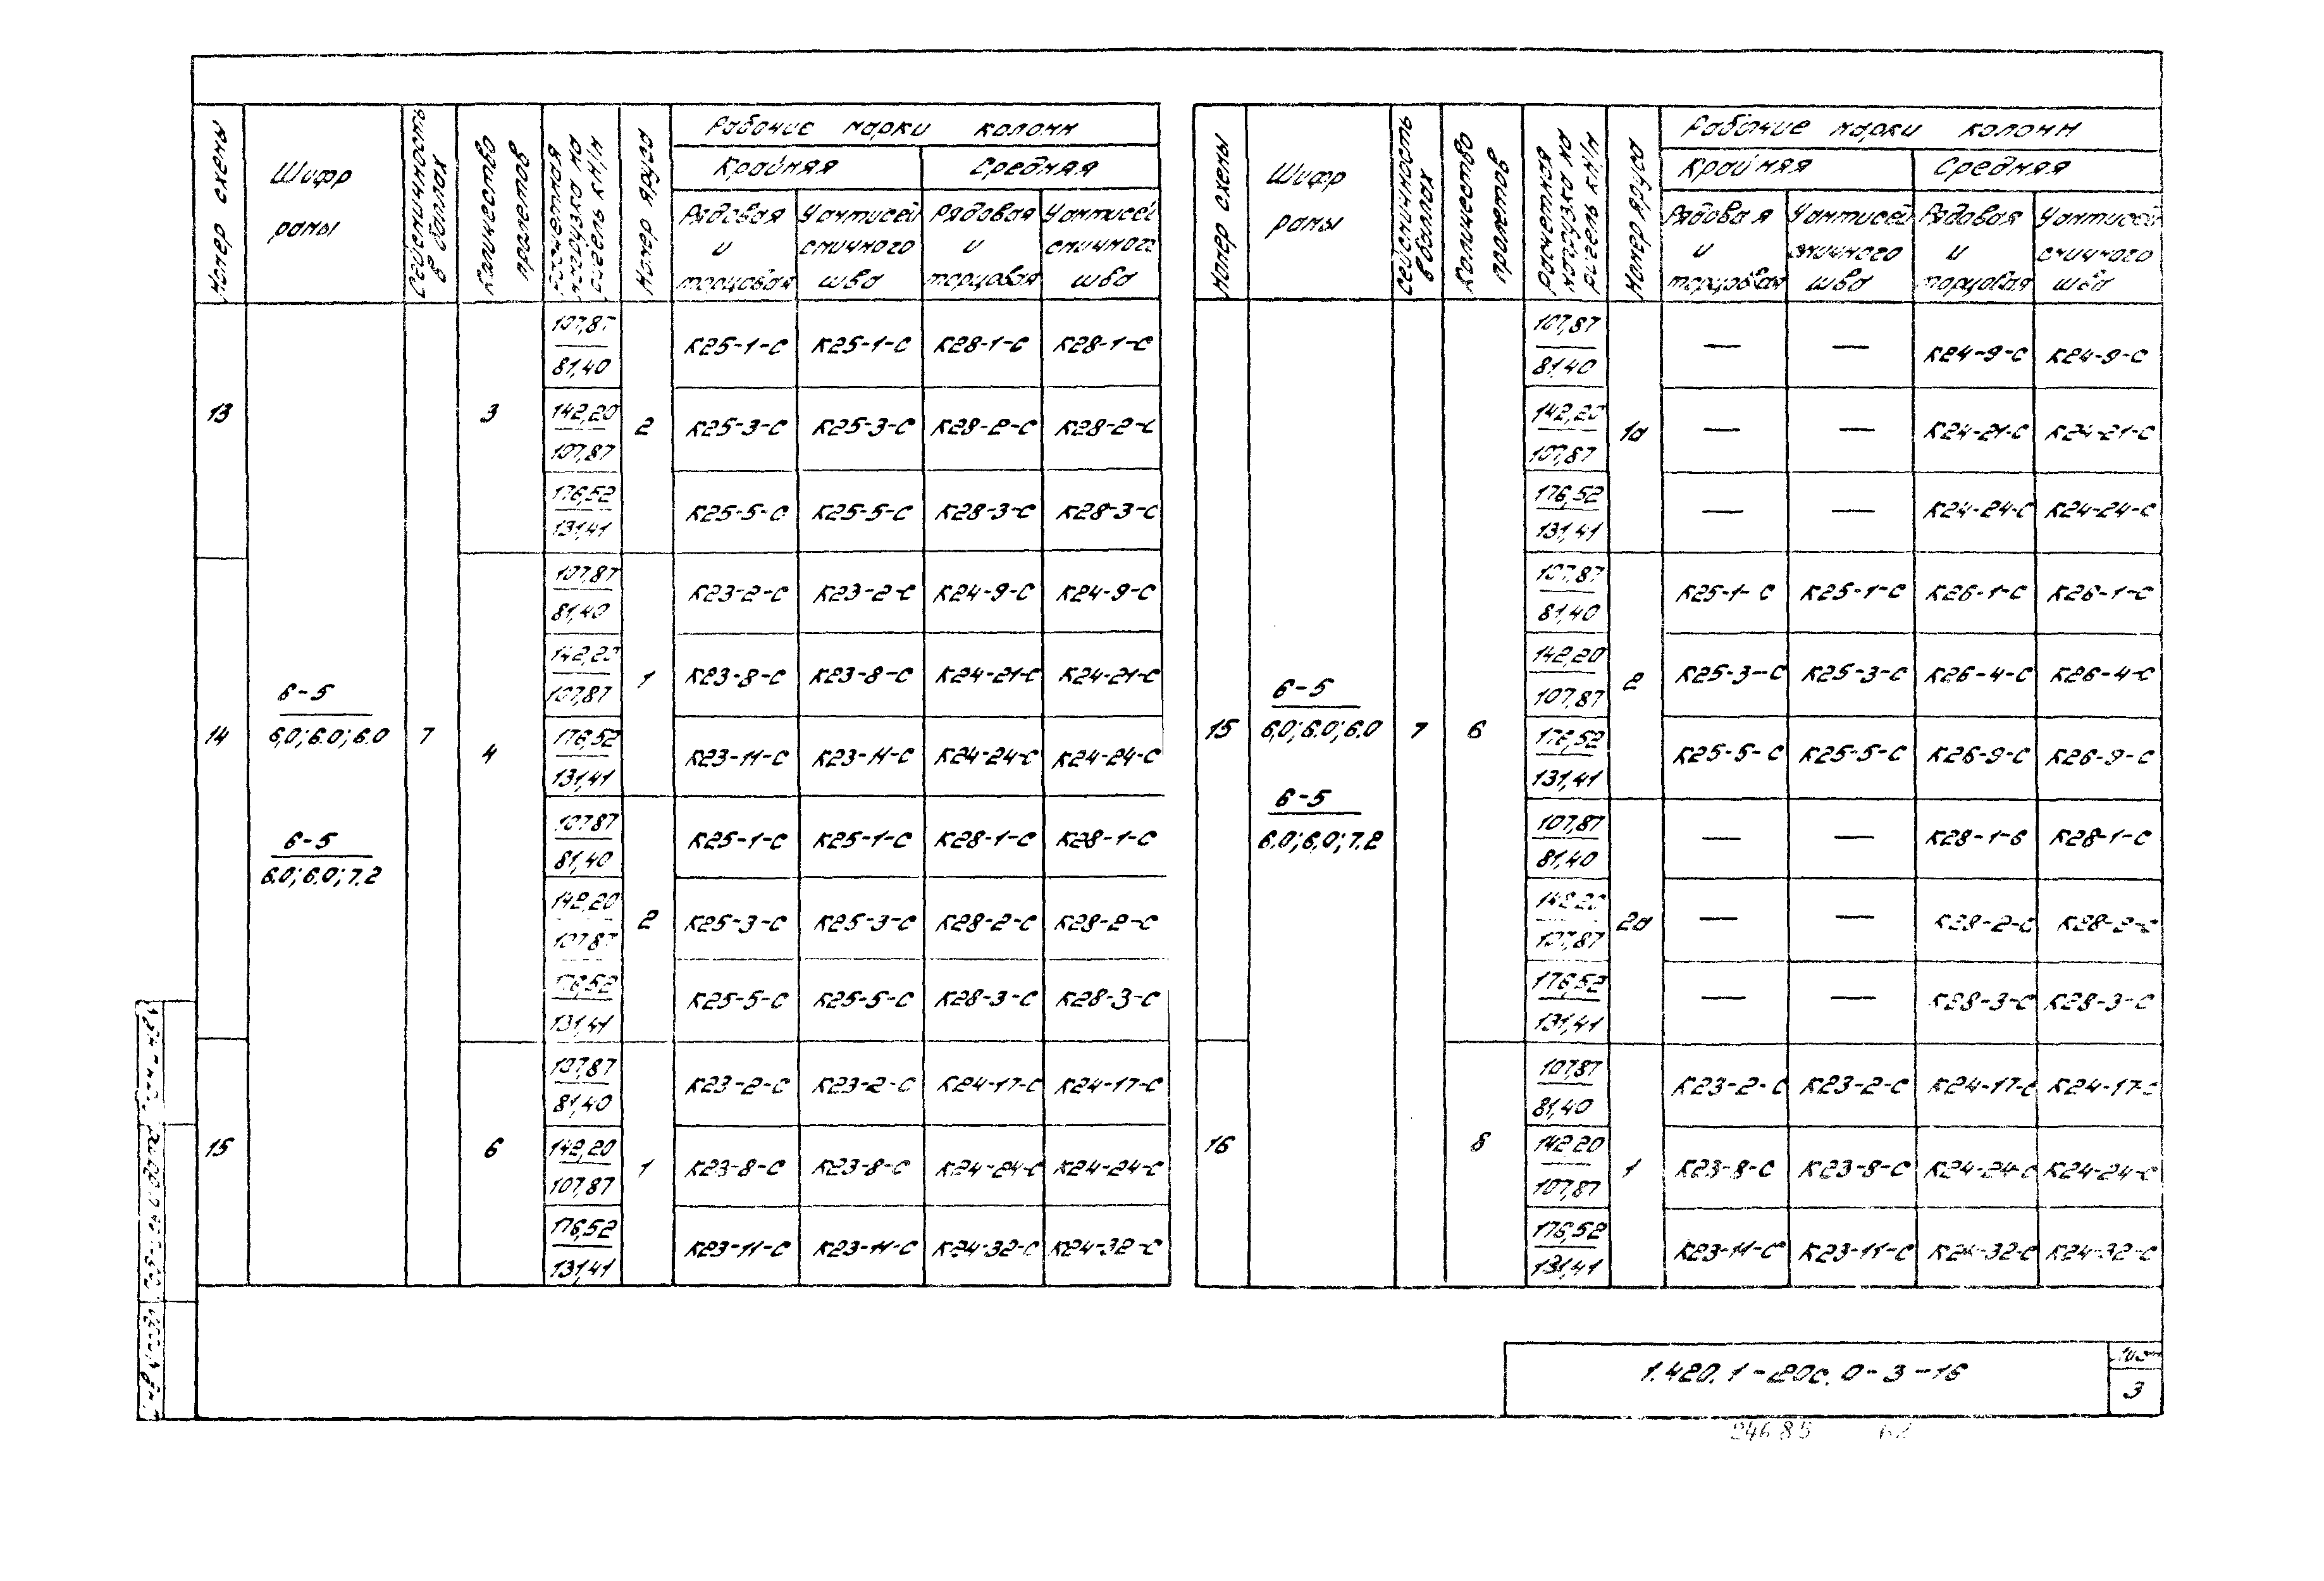 Номер схемы
Шифр рамы
Сейсмичность в баллах
Количество пролетов
Расчетная нагрузка на ригель кН/м
Номер яруса
Рабочие марки колонн
Крайняя Средняя
Рядовая и торцовая
У антисейсмичного шва
Рядовая и торцовая
У антисейсмичного шва
13
6-5
6,0; 6.0; 6.0
6-5
6.0; 6.0; 7.2
7
3
2
107,87
81,40
К25-1-С К25-1-С К28-1-С К28-1-С
142,20
107,87
К25-3-С К25-3-С К28-2-С К28-2-С
176,52
131,41
К25-5-С К25-5-С К28-3-С К28-3-С
14
4
1
107,87
81,40
К23-2-С К23-2-С К24-9-С К24-9-С
142,20
107,87
К23-8-С К23-8-С К24-21-С К24-21-С
176,52
131,41
К23-11-С К23-11-С К24-24-С К24-24-С
2
107,87
81,40
К25-1-С К25-1-С К28-1-С К28-1-С
142,20
107,87
К25-3-С К25-3-С К28-2-С К28-2-С
176,52
131,41
К25-5-С К25-5-С К28-3-С К28-3-С
15
6
1
107,87
81,40
К23-2-С К23-2-С К24-17-С К24-17-С
142,20
107,87
К23-8-С К23-8-С К24-24-С К24-24-С
176,52
131,41
К23-11-С К23-11-С К24-32-С К24-32-С
Номер схемы
Шифр рамы
Сейсмичность в баллах
Количество пролетов
Расчетная нагрузка на ригель кН/м
Номер яруса
Рабочие марки колонн
Крайняя Средняя
Рядовая и торцовая
У антисейсмичного шва
Рядовая и торцовая
У антисейсмичного шва
15
6-5
6,0; 6.0; 6.0
6-5
6.0; 6,0; 7.2
7
6
1а
107,87
81,40
— — К24-9-С К24-9-С
142,20
107,87
— — К24-21-С К24-21-С
176,52
131,41
— — К24-24-С К24-24-С
2
107,87
81,40
К25-1-С К25-1-С К26-1-С К26-1-С
142,20
107,87
К25-3-С К25-3-С К26-4-С К26-4-С
176,52
131,41
К25-5-С К25-5-С К26-9-С К26-9-С
2а
107,87
81,40
— — К28-1-б К28-1-С
142,20
107,87
— — К28-2-С К28-2-С
176,52
131,41
— — К28-3-С К28-3-С
16
8
1
107,87
81,40
К23-2-С К23-2-С К24-17-С К24-17-С
142,20
107,87
К23-8-С К23-8-С К24-24-С К24-24-С
176,52
131,41
К23-11-С К23-11-С К24-32-С К24-32-С
1.420.1-20с.0-3-16
Лист
3
24685